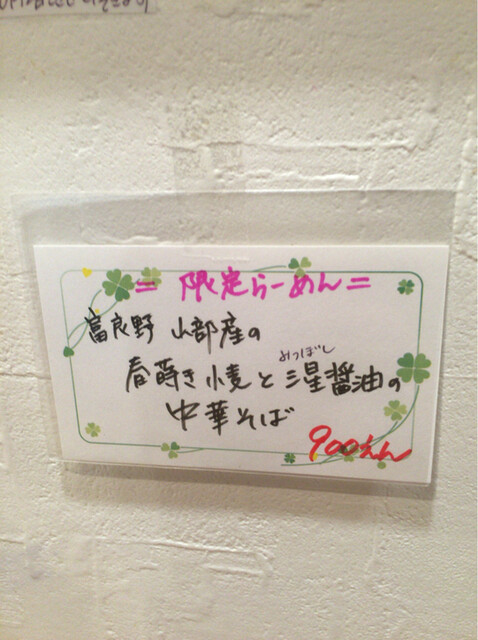 = 限定らーめん =
富良野 山部産の
みつぼし
春蒔き小麦と三星醤油の
中華そば
900えん